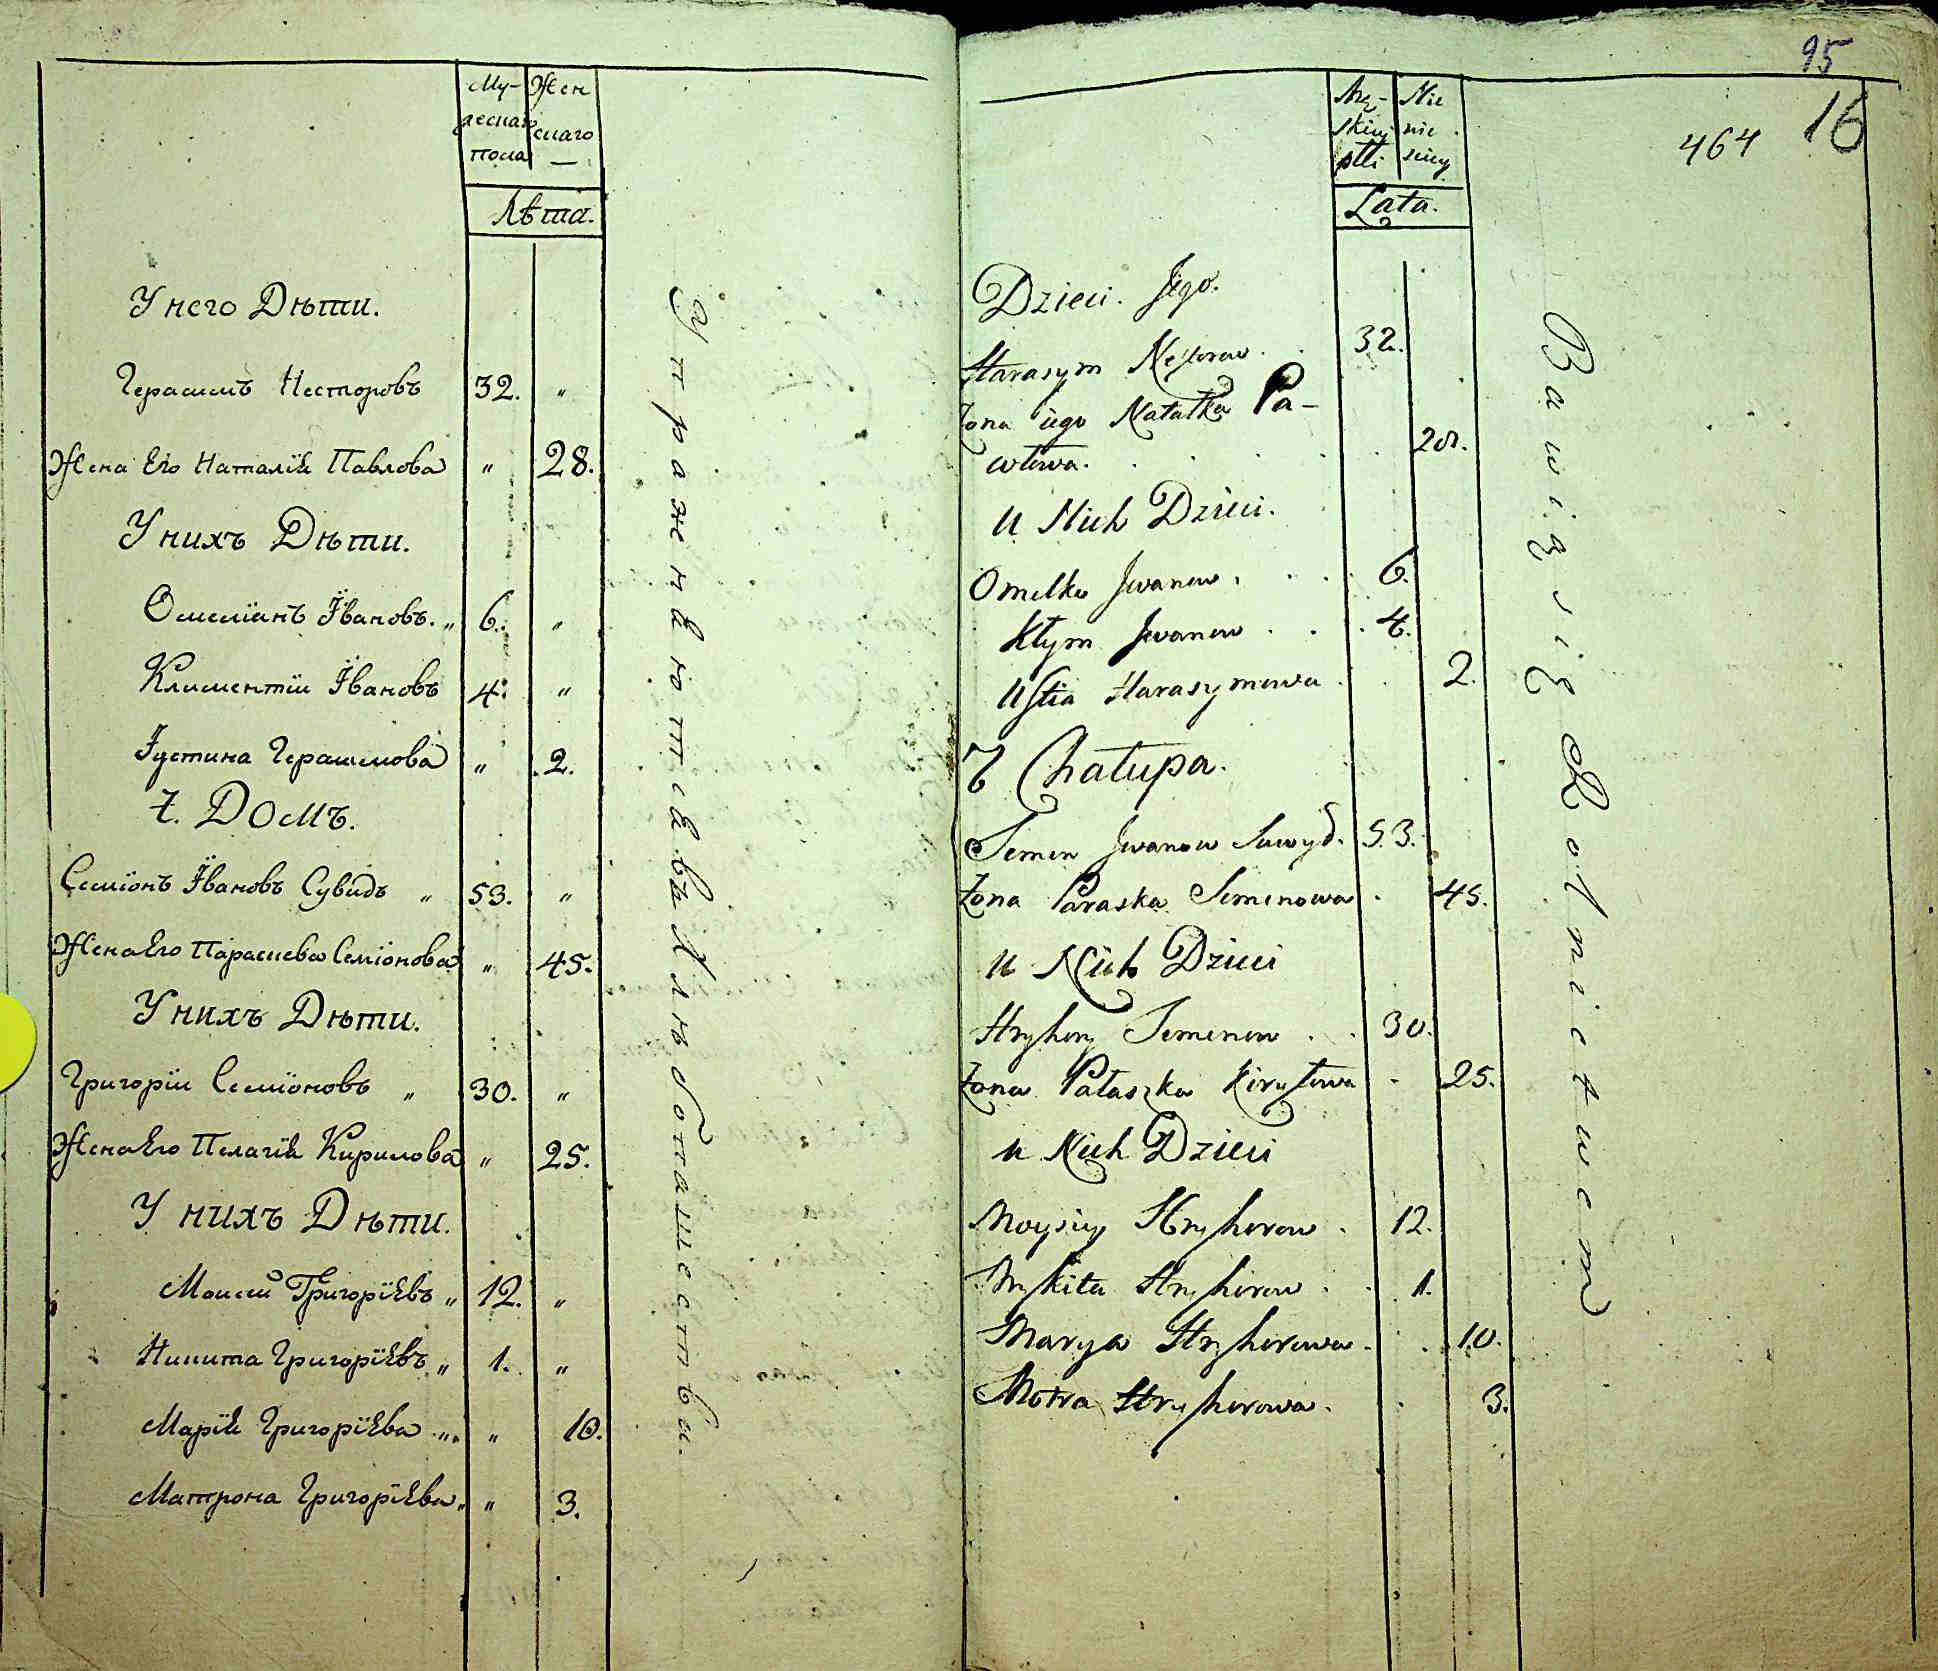 Му-
жескаго
пола
Жен
скаго
—
Лѣта.
У него Дѣти.
Герасимъ Несторовъ 32. "
Жена Его Наталїя Павлова " 28.
У нихъ Дѣти.
Омелїанъ Ївановъ. " 6. "
Климентїи Ївановъ 4. "
Їустина Герасимова " 2.
7. Домъ.
Семїонъ Ївановъ Сувидъ " 53. "
Жена Его Параскева Семїонова " 45.
У нихъ Дѣти.
Григорїи Семїоновъ " 30. "
Жена Его Пелагїя Кирилова " 25.
У нихъ Дѣти.
Моисей Григорїевъ " 12. "
Никита Григорїевъ " 1. "
Марїя Григорїева " " 10.
Матрона Григорїева " " 3.
Упражняются въ Хлѣбопашествѣ.
95
464 16
Mę-
skiey
płci
Nie
wie
sciey
Lata.
Dzieci Jego.
Harasym Nesterow 32.
Żona iego Natałka Pa-
włowa. 28.
u Nich Dzieci.
Omelko Jwanow. 6.
Kłym Jwanow 4.
Ustia Harasymowa 2.
7 Chałupa.
Semen Jwanow Suwyd. 53.
Żona Paraska Semenowa 45.
u Nich Dzieci
Hryhory Semenow 30.
Żona Pałaszka Kiryłowa 25.
u Nich Dzieci
Moysiey Hryhorow 12.
Mykita Hryhorow 1.
Marya Hryhorowa 10.
Motra Hryhorowa 3.
Bawią się Rolnictwem